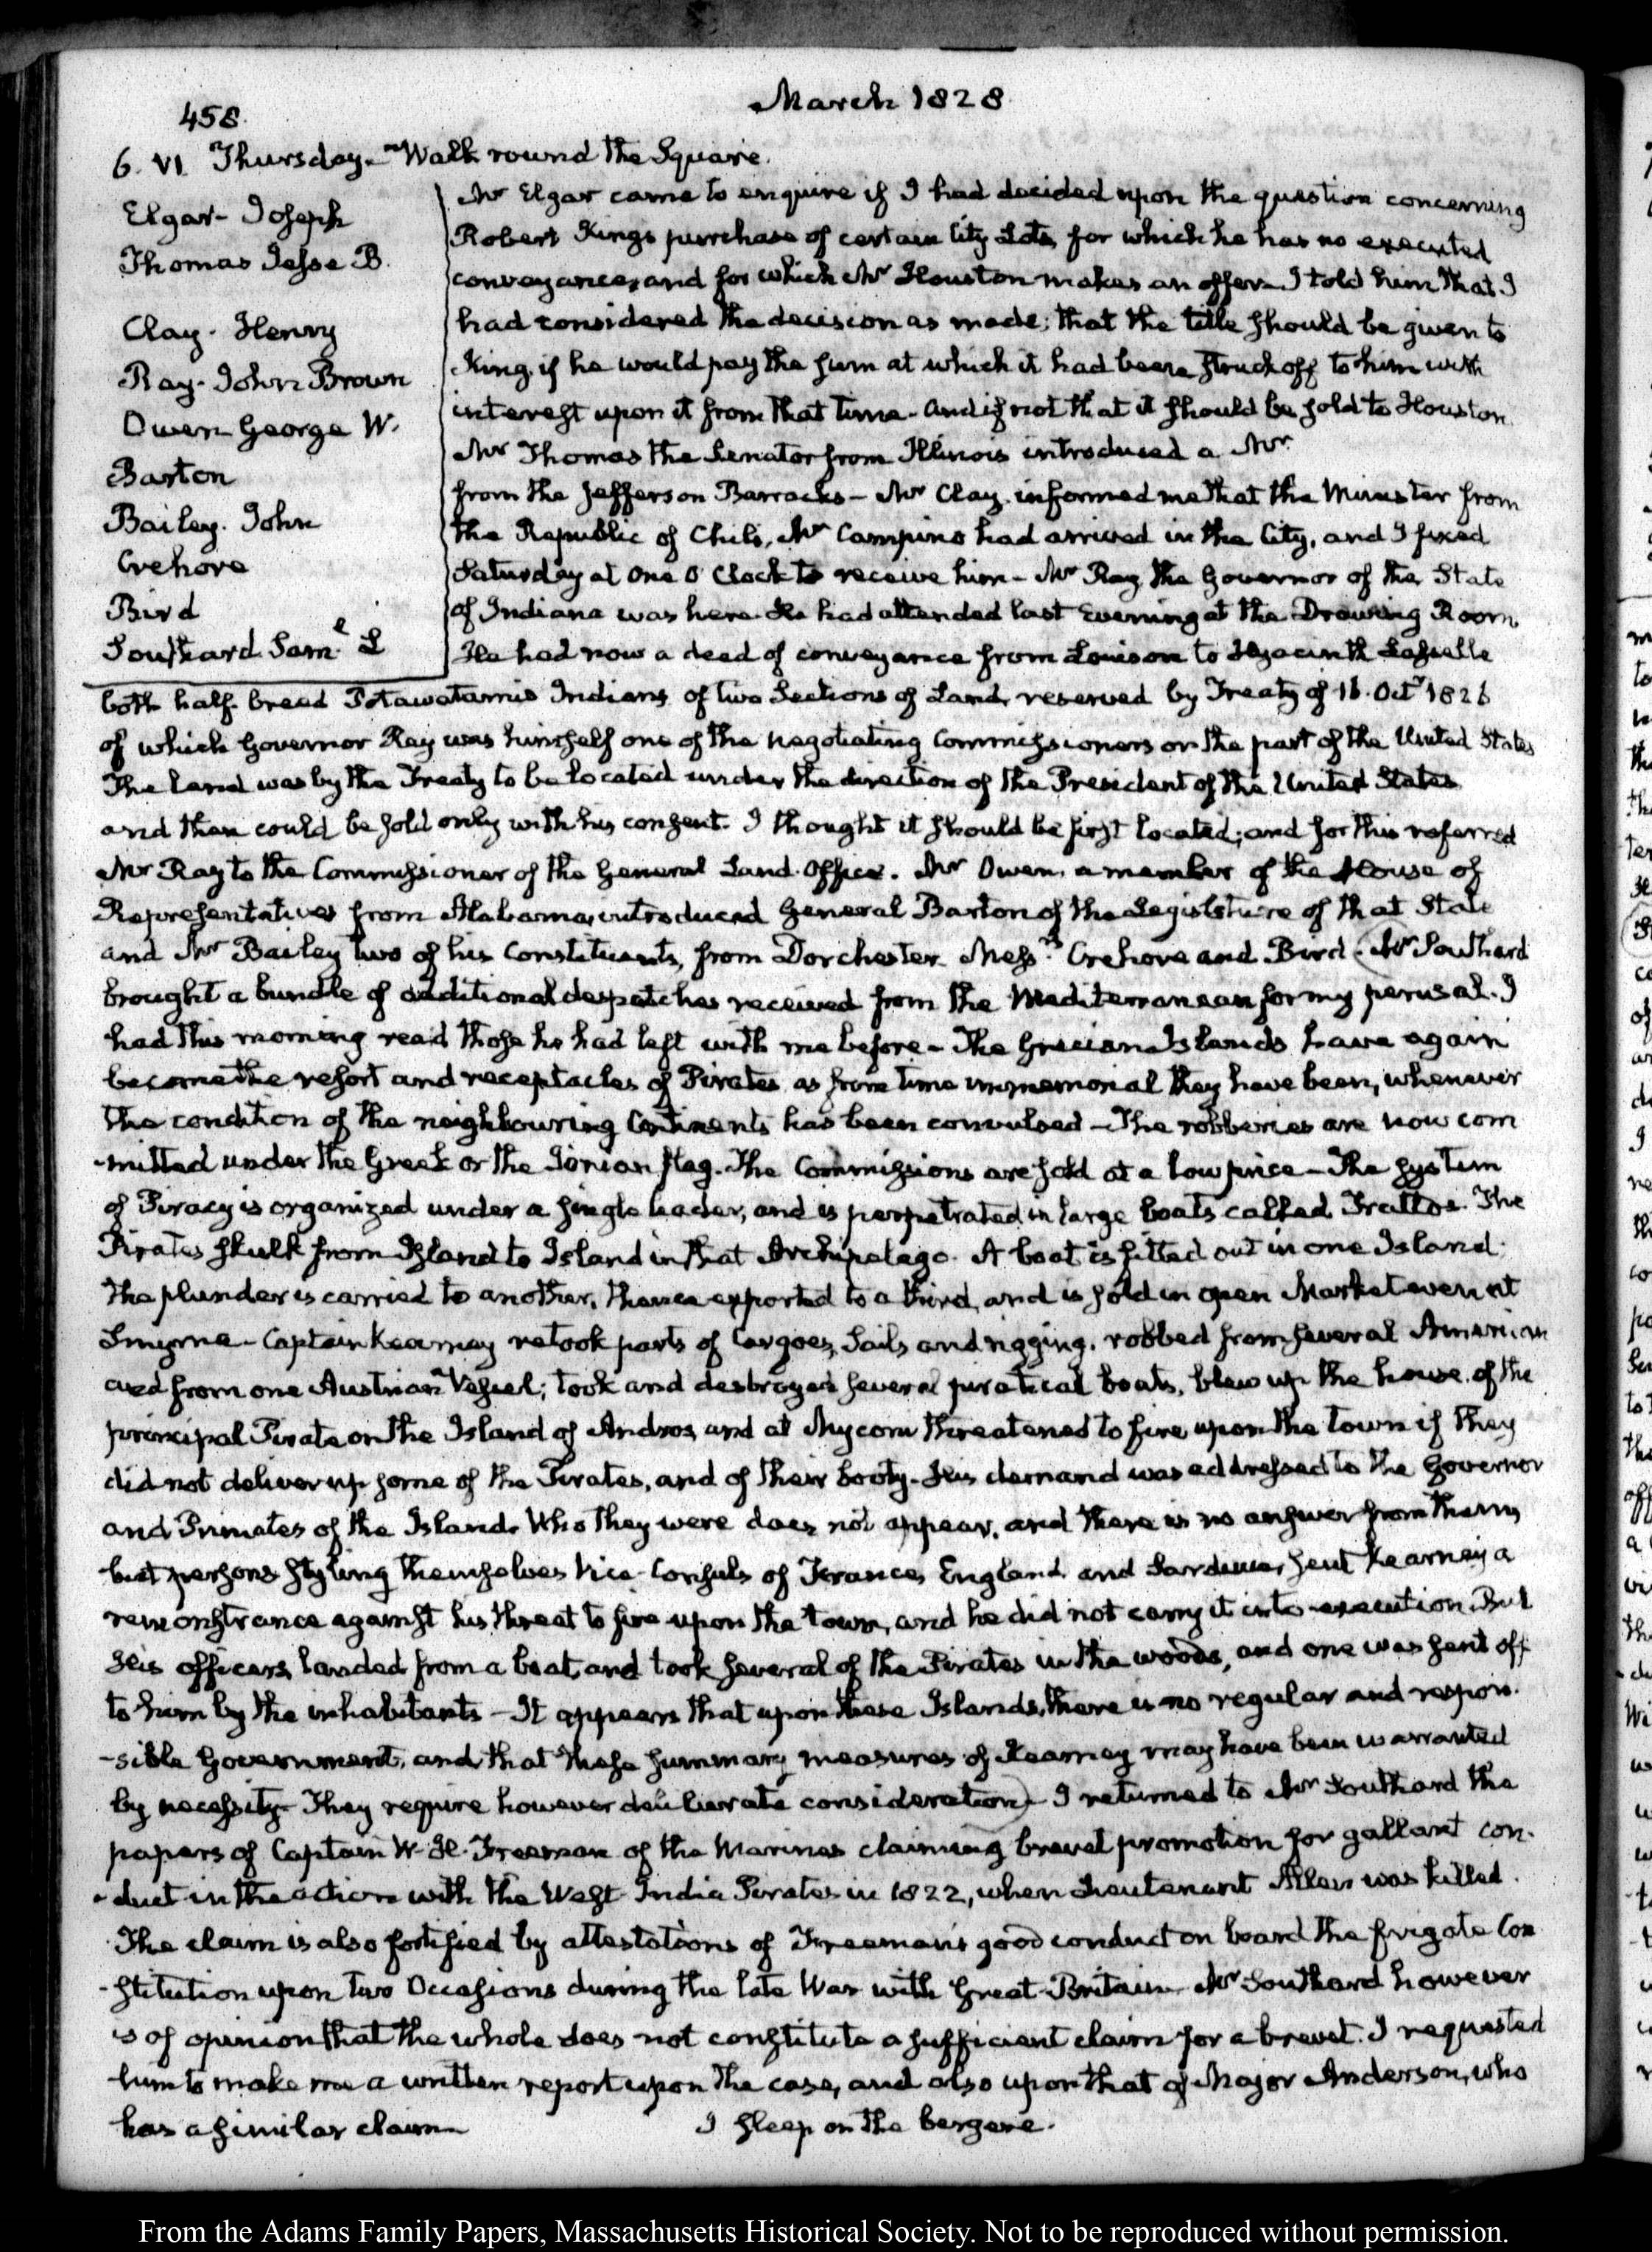 458.
March 1828
6. VI. Thursday. Walk round the Square.
Elgar- Joseph
Thomas Jesse B.
Clay. Henry
Ray. John Brown
Owen George W.
Barton
Bailey. John
Crehore
Bird
Southard Saml. L
Mr Elgar came to enquire if I had decided upon the question concerning
Robert Kings purchase of certain City Lots, for which he has no executed
conveyances, and for which Mr Houston makes an offer. I told him that I
had considered the decision as made; that the title should be given to
King, if he would pay the sum at which it had been struck off to him with
interest upon it from that time- and if not that it should be sold to Houston.
Mr Thomas the Senator from Illinois introduced a Mr
from the Jefferson Barracks- Mr Clay informed me that the Minister from
the Republic of Chili, Mr Campino had arrived in the City, and I fixed
Saturday at one O'Clock to receive him- Mr Ray the Governor of the State
of Indiana was here. He had attended last Evening at the Drawing Room.
He had now a deed of conveyance from Louison to Hyacinth Lasselle
both half-breed Potawatamie Indians of two Sections of Land, reserved by Treaty of 16. Octr 1826
of which Governor Ray was himself one of the negotiating Commissioners on the part of the United States
The land was by the Treaty to be located under the direction of the President of the United States
and then could be sold only with his consent. I thought it should be first located; and for this referred
Mr Ray to the Commissioner of the General Land-Office. Mr Owen, a member of the House of
Representatives from Alabama, introduced General Barton of the Legislature of that State
and Mr Bailey two of his Constituents, from Dorchester Messrs Crehore and Bird. Mr Southard
brought a bundle of additional despatches received from the Mediterranean for my perusal. I
had this morning read those he had left with me before- The Grecian Islands have again
become the resort and receptacles of Pirates as from time immemorial they have been, whenever
the condition of the neighbouring Continents has been convulsed- The robberies are now com
-mitted under the Greek or the Ionian flag. The Commissions are sold at a low price- The system
of Piracy is organized under a single leader, and is perpetrated in large boats called Trattas. The
Pirates skulk from Island to Island in that Archipelago. A boat is fitted out in one Island.
The plunder is carried to another, thence exported to a third, and is sold in open Market even at
Smyrna- Captain Kearney retook parts of Cargoes, Sails and rigging, robbed from several American
and from one Austrian Vessel; took and destroyed several piratical boats, blew up the house of the
principal Pirate on the Island of Andros, and at Myconi threatened to fire upon the town if they
did not deliver up some of the Pirates, and of their booty. His demand was addressed to the Governor
and Primates of the Island. Who they were does not appear, and there is no answer from them,
but persons styling themselves Vice-Consuls of France, England and Sardinia, sent Kearney a
remonstrance against his threat to fire upon the town, and he did not carry it into execution. But
His officers landed from a boat, and took several of the Pirates in the woods, and one was sent off
to him by the inhabitants- It appears that upon these Islands, there is no regular and respon-
-sible Government, and that these summary measures of Kearney may have been warranted
by necessity- They require however deliberate consideration) I returned to Mr Southard the
papers of Captain W. H. Freeman of the Marines claiming brevet promotion for gallant con-
-duct in the action with the West-India Pirates in 1822, when Lieutenant Allen was killed.
The claim is also fortified by attestations of Freeman's good conduct on board the frigate Con
-stitution upon two Occasions during the late War with Great-Britain. Mr Southard however
is of opinion that the whole does not constitute a sufficient claim for a brevet. I requested
him to make me a written report upon the case, and also upon that of Major Anderson, who
has a similar claim- I sleep on the bergere.
From the Adams Family Papers, Massachusetts Historical Society. Not to be reproduced without permission.